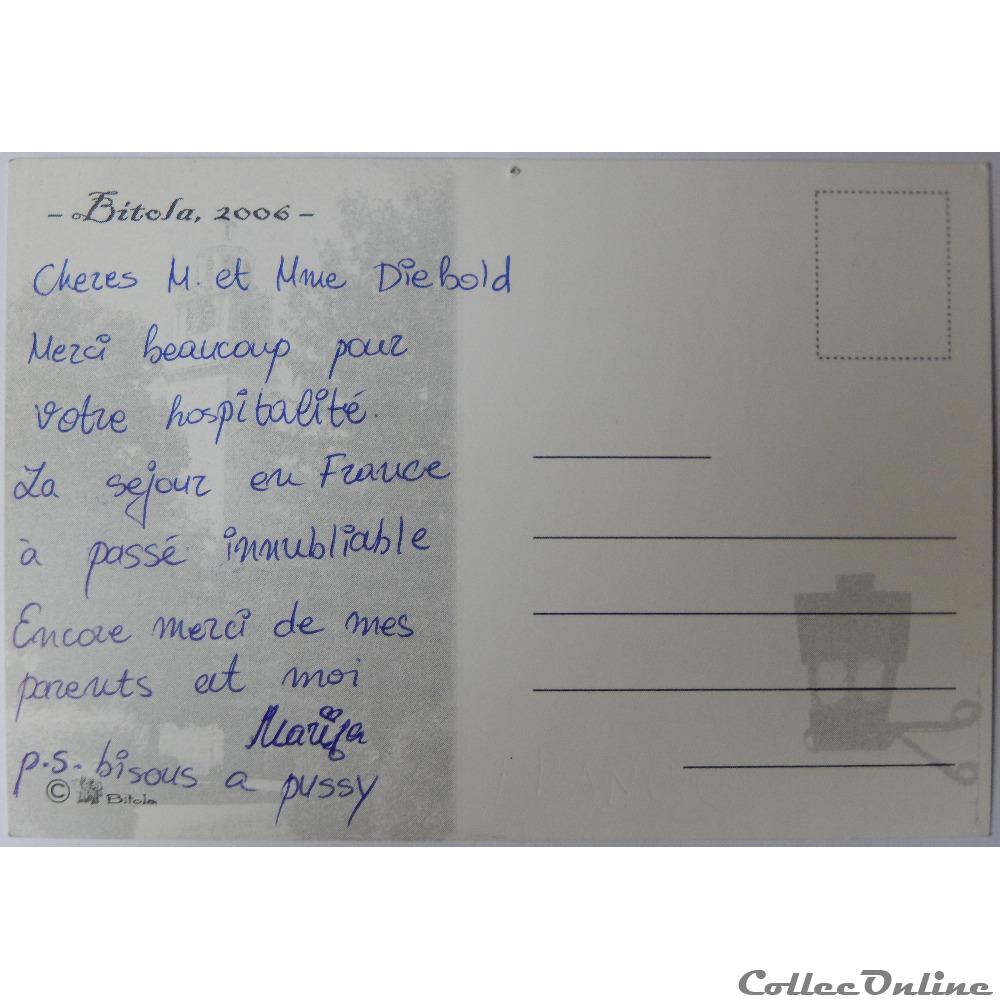 - Bitola, 2006 -
Cheres M. et Mme Diebold
Merci beaucoup pour
votre hospitalité.
La sejour en France
à passé innubliable
Encore merci de mes
parents et moi
Marija
p.s. bisous a pussy
© Bitola
CollecOnline